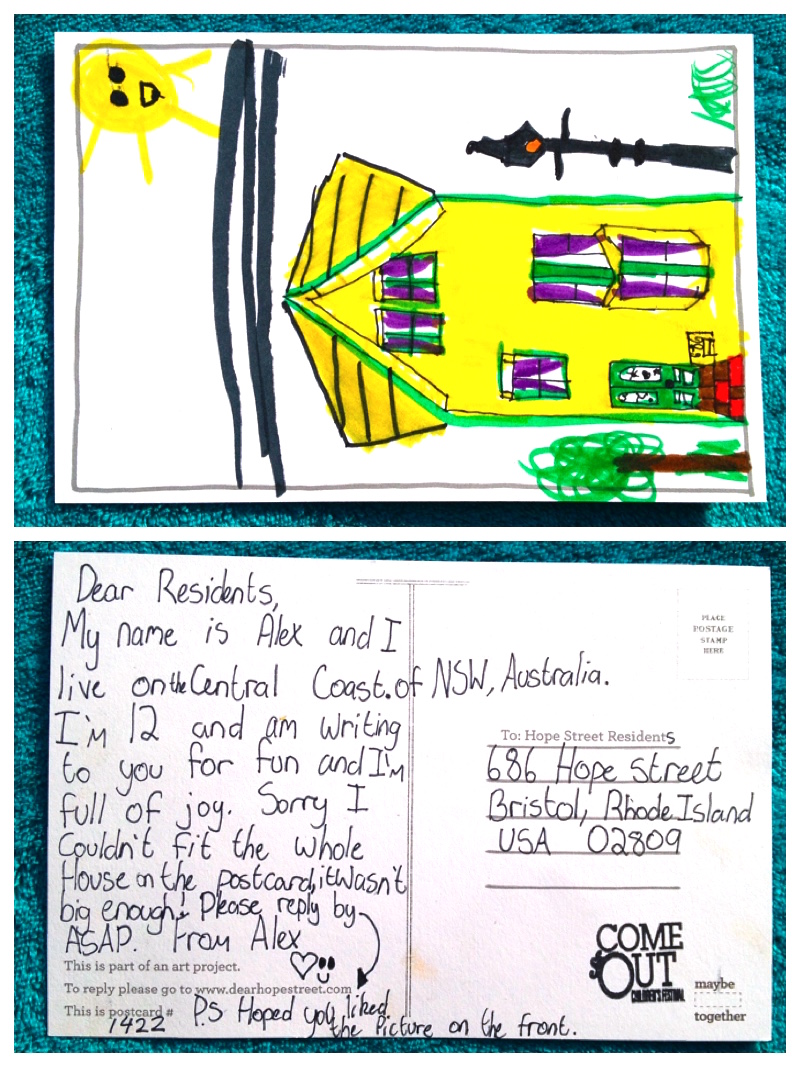 Dear Residents,
My name is Alex and I
live on the Central Coast. of NSW, Australia.
I'm 12 and am writing
to you for fun and I'm
full of joy. Sorry I
Couldn't fit the whole
House on the postcard, it wasn't
big enough! Please reply by
ASAP. From Alex
This is part of an art project.
To reply please go to www.dearhopestreet.com
This is postcard #
1422
P.S Hoped you liked
the Picture on the front.
PLACE
POSTAGE
STAMP
HERE
To: Hope Street Residents
686 Hope Street
Bristol, Rhode Island
USA 02809
COME
OUT
CHILDREN'S FESTIVAL
maybe
together